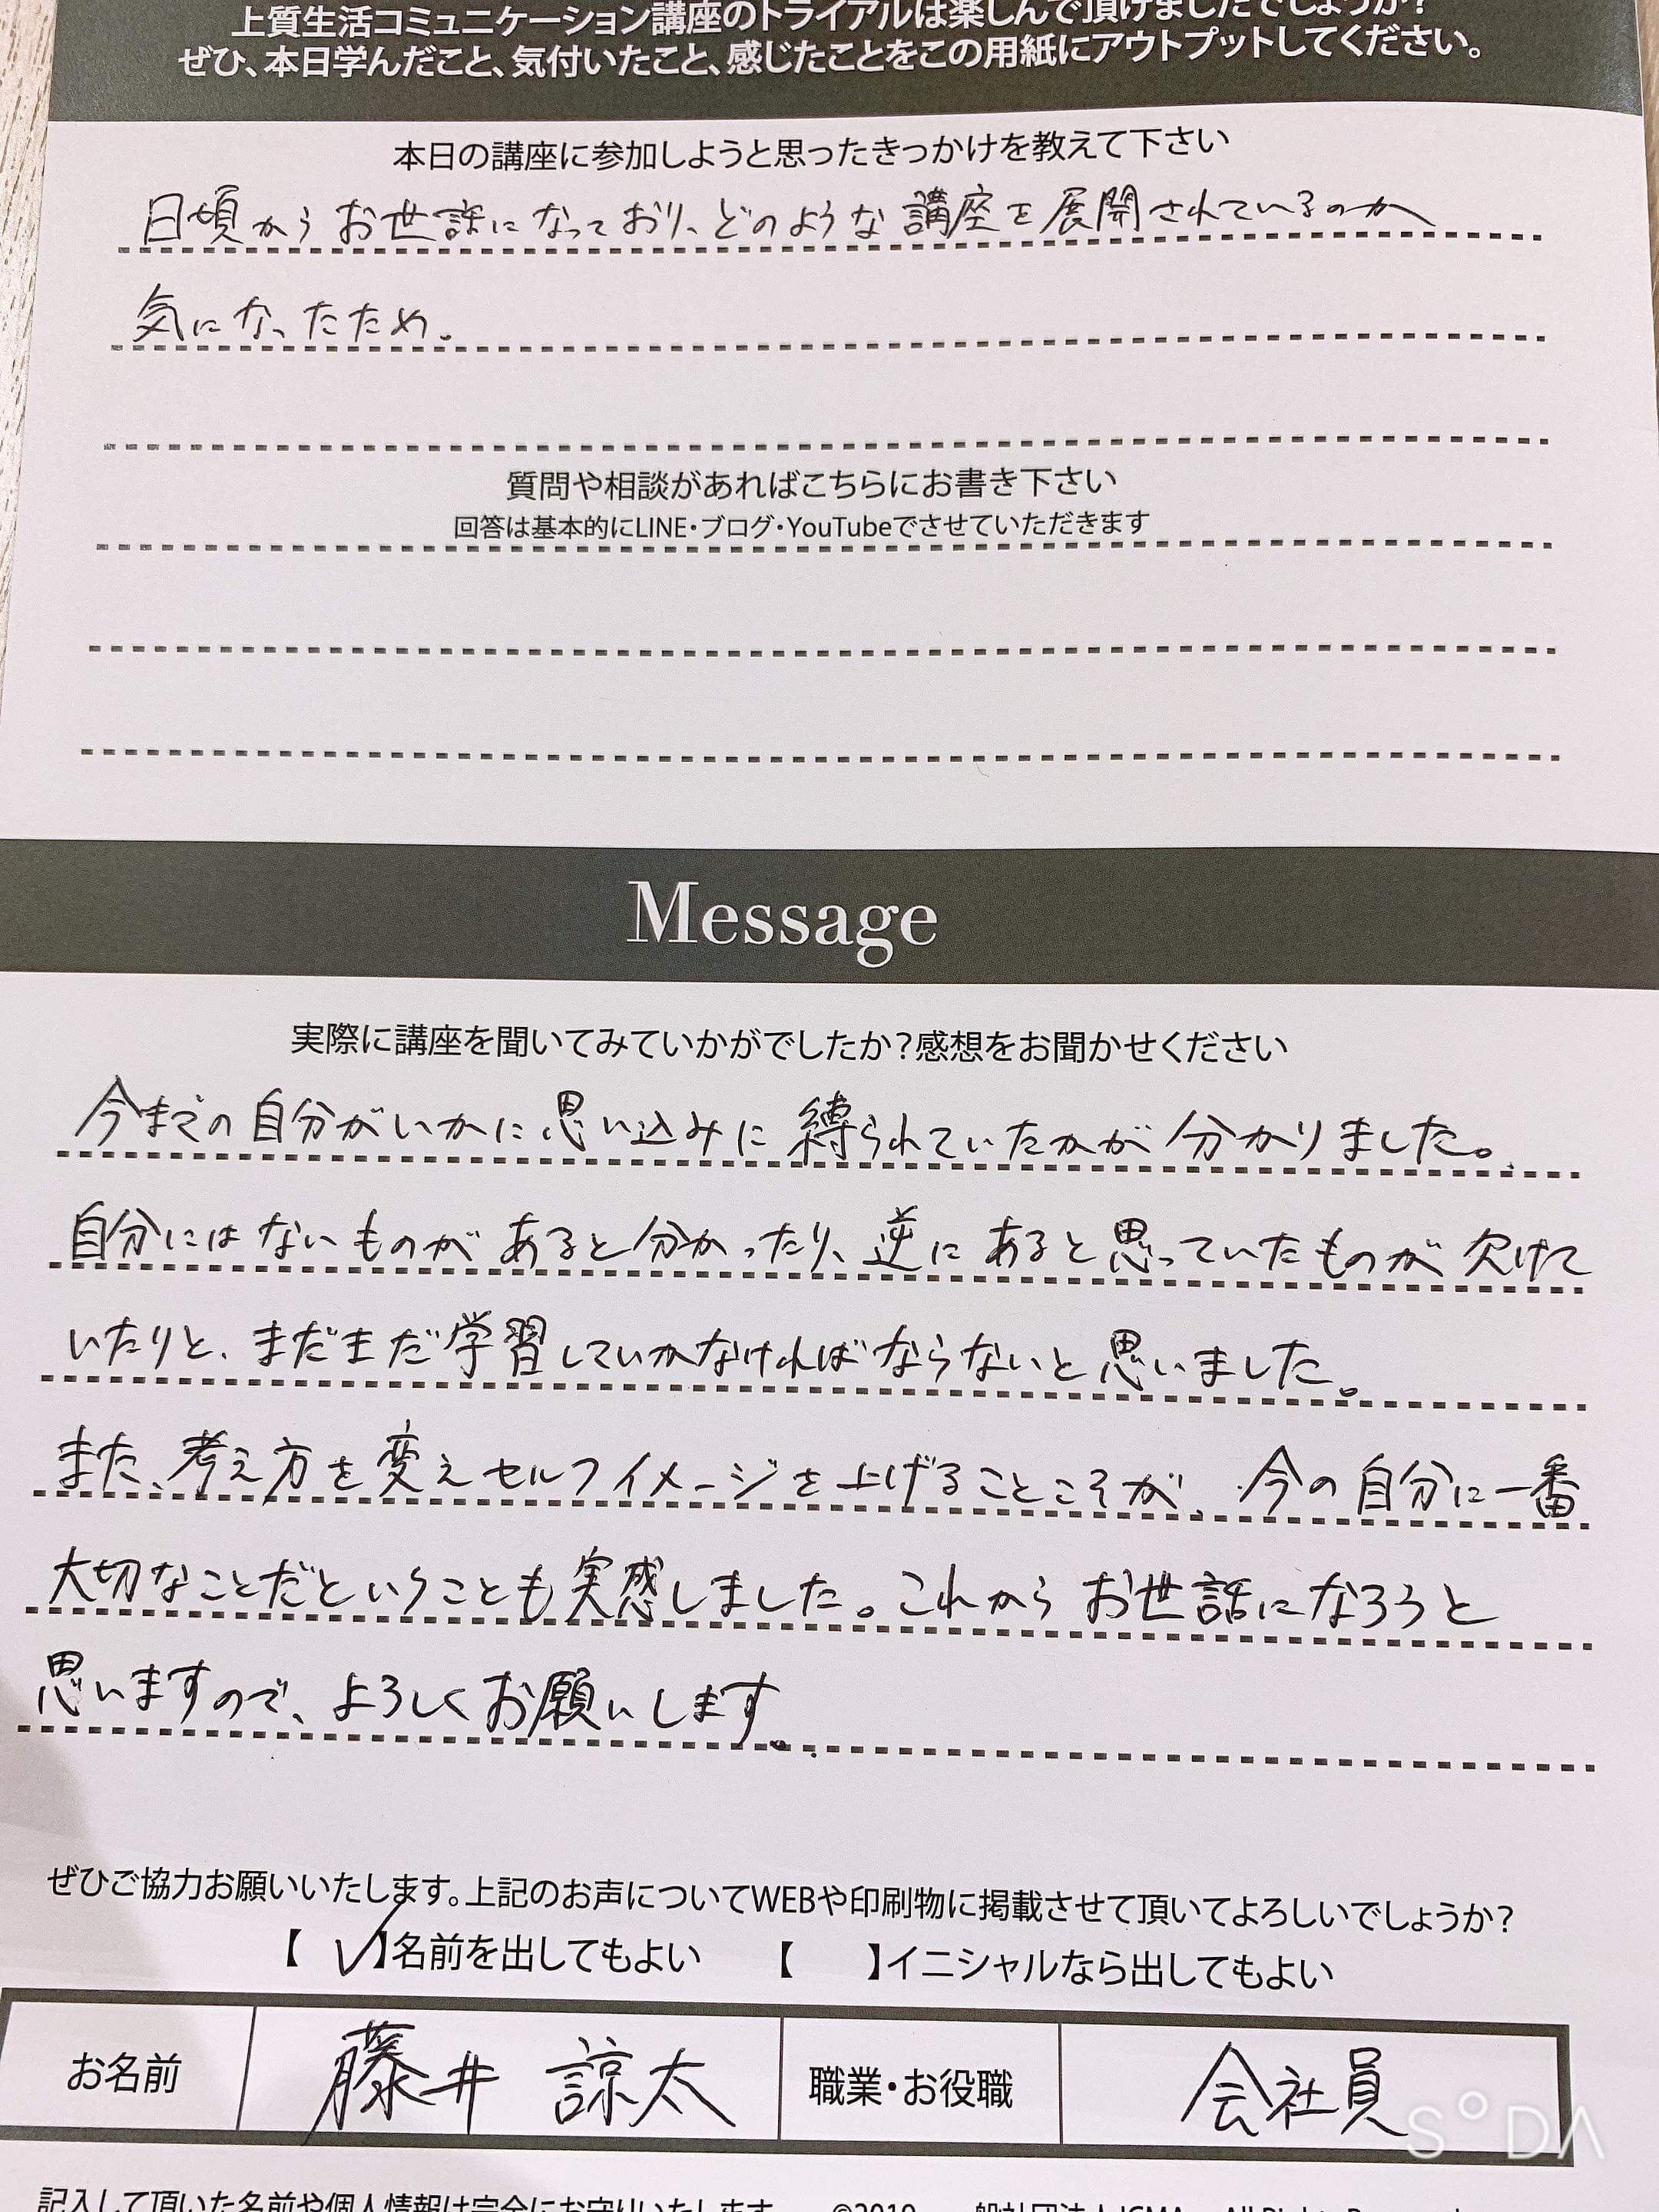 上質生活コミュニケーション講座のトライアルは楽しんで頂けましたでしょうか?
ぜひ、本日学んだこと、気付いたこと、感じたことをこの用紙にアウトプットしてください。
本日の講座に参加しようと思ったきっかけを教えて下さい
日頃からお世話になっており、どのような講座を展開されているのか
気になったため。
質問や相談があればこちらにお書き下さい
回答は基本的にLINE・ブログ・YouTubeでさせていただきます
Message
実際に講座を聞いてみていかがでしたか?感想をお聞かせください
今までの自分がいかに思い込みに縛られていたかが分かりました。
自分にはないものがあると分かったり、逆にあると思っていたものが欠けて
いたりと、まだまだ学習していかなければならないと思いました。
また、考え方を変えセルフイメージを上げることこそが、今の自分に一番
大切なことだということも実感しました。これからお世話になろうと
思いますので、よろしくお願いします。
ぜひご協力お願いいたします。上記のお声についてWEBや印刷物に掲載させて頂いてよろしいでしょうか?
【✓】名前を出してもよい 【 】イニシャルなら出してもよい
お名前 藤井 諒太 職業・お役職 会社員
SODA
記入して頂いた名前や個人情報は完全にお守りいたします ©2019 一般社団法人JCMA All Rights Reserved